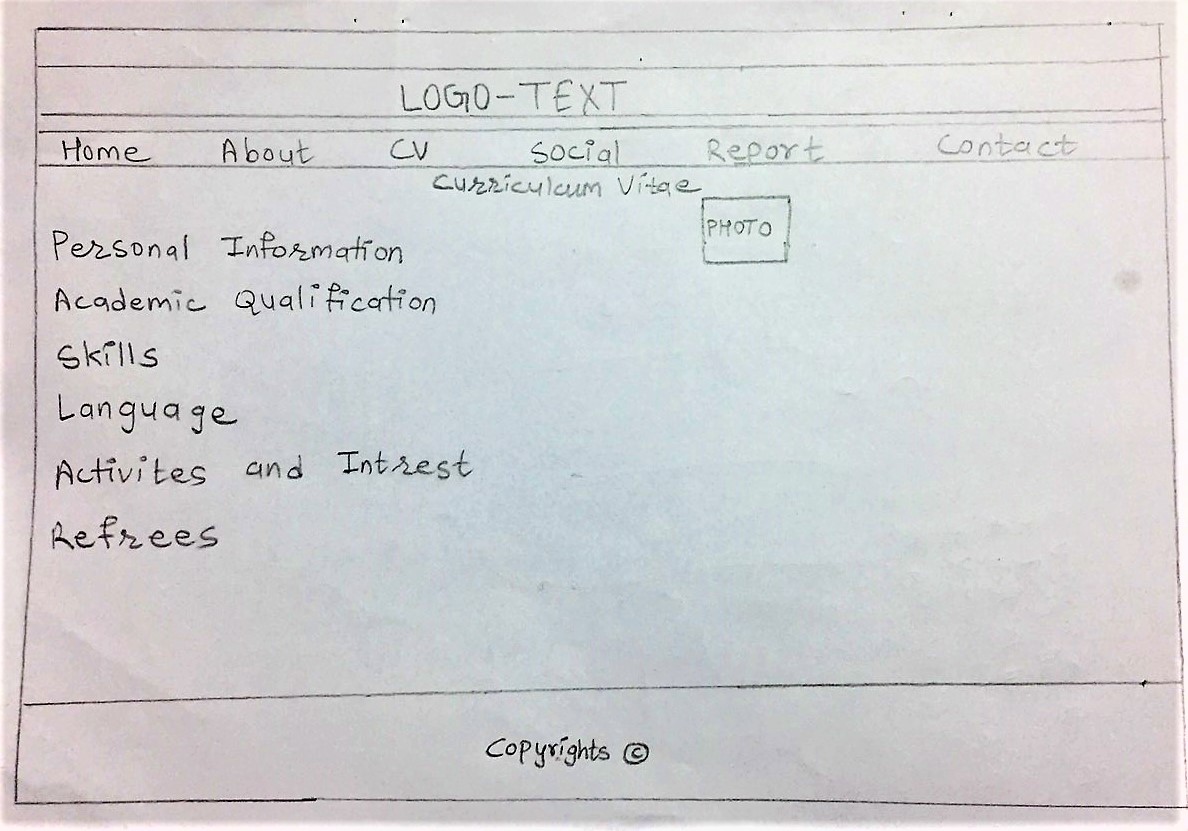 LOGO-TEXT
Home About CV Social Report Contact
Curriculcum Vitae
PHOTO
Personal Information
Academic Qualification
Skills
Language
Activites and Intrest
Refrees
Copyrights ©